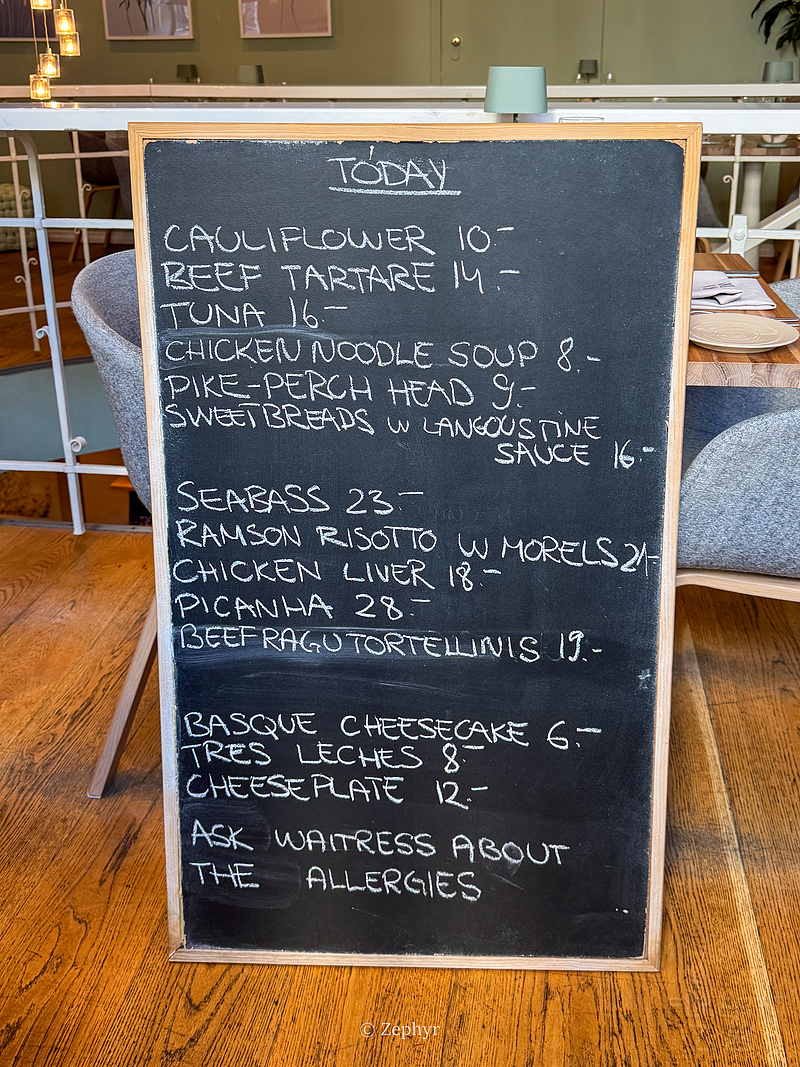 TODAY
CAULIFLOWER 10.-
BEEF TARTARE 14.-
TUNA 16.-
CHICKEN NOODLE SOUP 8.-
PIKE-PERCH HEAD 9.-
SWEETBREADS W LANGOUSTINE
SAUCE 16.-
SEABASS 23.-
RAMSON RISOTTO W MORELS 21.-
CHICKEN LIVER 18.-
PICANHA 28.-
BEEF RAGU TORTELLINIS 19.-
BASQUE CHEESECAKE 6.-
TRES LECHES 8.-
CHEESEPLATE 12.-
ASK WAITRESS ABOUT
THE ALLERGIES
© Zephyr